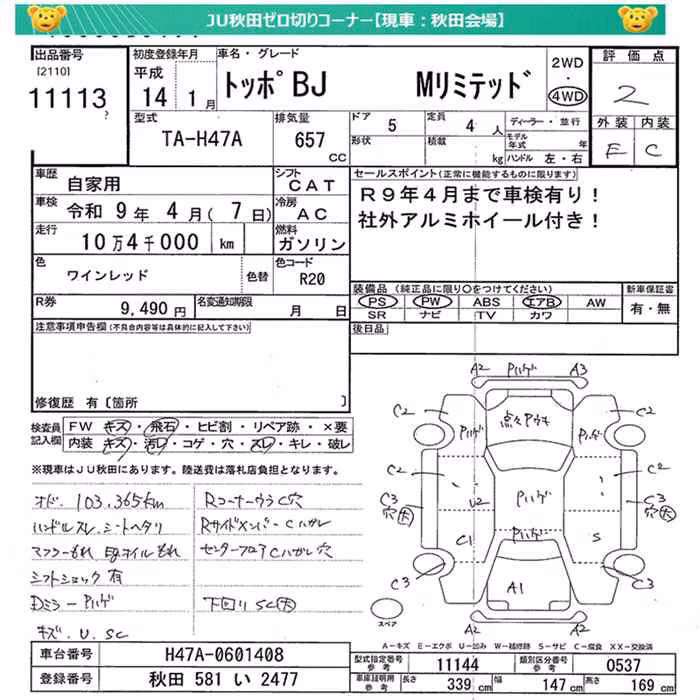 JU秋田ゼロ切りコーナー【現車：秋田会場】
出品番号
[2110]
11113
初度登録年月
平成
14 1月
車名・グレード
トッポBJ Mリミテッド
2WD
・
4WD
評価点
2
外装 内装
E C
型式
TA-H47A
排気量
657
CC
ドア 5
定員 4 人
形状
積載 kg
ディーラー・並行
モデル年式 年
ハンドル 左・右
車歴 自家用
シフト CAT
車検 令和 9年 4月( 7日)
冷房 AC
走行 10万4千000 km
燃料 ガソリン
色 ワインレッド 色替
色コード R20
R券 9,490円
名変通知期限 月 日
セールスポイント(正常に機能するものに限ります)
R9年4月まで車検有り！
社外アルミホイール付き！
装備品 (純正品に限り○をつけてください)
PS PW ABS エアB AW
SR ナビ TV カワ
新車保証書
有・無
後日品
注意事項申告欄(不具合内容等は具体的に記入して下さい)
修復歴 有〔箇所 〕
検査員
記入欄
FW キズ・飛石・ヒビ割・リペア跡・×要
内装 キズ・汚レ・コゲ・穴・スレ・キレ・破レ
※現車はJU秋田にあります。陸送費は落札店負担となります。
オド．103,365km
ハンドルスレ、シートヘタリ
マフラーもれ
シフトショック有
Dミラーハゲ
キズ．U．SC
RコーナーウラC穴
RサイドメンバーCハガレ
センターフロアCハガレ穴
下回りSC大
A2 Pハゲ A3
C2 Pハゲ 点々アウキ Pハゲ C2
C2 U2 Pハゲ C2
C3 C3
穴大 穴大
C1 Pハゲ S
C3 A1 C3
A2 A2
スペア
A－キズ E－エクボ U－凹み W－補修跡 S－サビ C－腐食 XX－交換済
車台番号 H47A-0601408
登録番号 秋田 581 い 2477
型式指定番号
参考
11144
類別区分番号
参考
0537
車庫証明用
参考
長さ 339 cm 幅 147 cm 高さ 169 cm